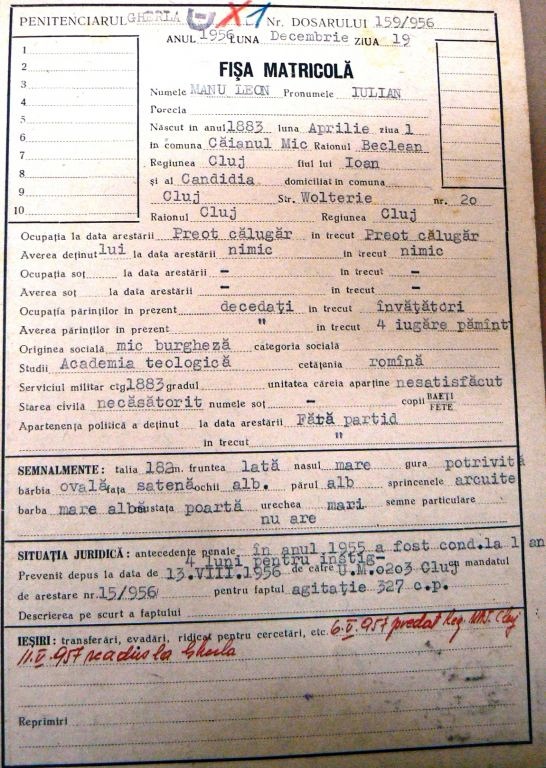 PENITENCIARUL GHERLA X1 Nr. DOSARULUI 159/956
ANUL 1956 LUNA Decembrie ZIUA 19
FIȘA MATRICOLĂ
1
2
3
4
5
6
7
8
9
10
Numele MANU LEON Pronumele IULIAN
Porecla
Născut în anul 1883 luna Aprilie ziua 1
în comuna Căianul Mic Raionul Beclean
Regiunea Cluj fiul lui Ioan
și al Candidia domiciliat în comuna
Cluj Str. Wolterie nr. 20
Raionul Cluj Regiunea Cluj
Ocupația la data arestării Preot călugăr în trecut Preot călugăr
Averea deținutlui la data arestării nimic în trecut nimic
Ocupația soț la data arestării - în trecut -
Averea soț la data arestării - în trecut -
Ocupația părinților în prezent decedați în trecut învățători
Averea părinților în prezent " în trecut 4 iugăre pămînt
Originea socială mic burgheză categoria socială
Studii Academia teologică cetățania romînă
Serviciul militar ctg 1883 gradul unitatea căreia aparține nesatisfăcut
Starea civilă necăsătorit numele soț - copii BAEȚI FETE
Apartenența politică a deținut la data arestării Fără partid
în trecut "
SEMNALMENTE: talia 182 m. fruntea lată nasul mare gura potrivită
bărbia ovală fața satenă ochii alb. părul alb sprincenele arcuite
barba mare albă mustața poartă urechea mari semne particulare
nu are
SITUAȚIA JURIDICĂ: antecedente penale în anul 1955 a fost cond.la 1 an
4 luni pentru instig-
Prevenit depus la data de 13.VIII.1956 de către U.M.0203 Cluj cu mandatul
de arestare nr. 15/956 pentru faptul agitație 327 c.p.
Descrierea pe scurt a faptului
IEȘIRI: transferări, evadări, ridicat pentru cercetări, etc. 6.V.957 predat Reg. Cluj
11.V.957 readus la Gherla
Reprimiri